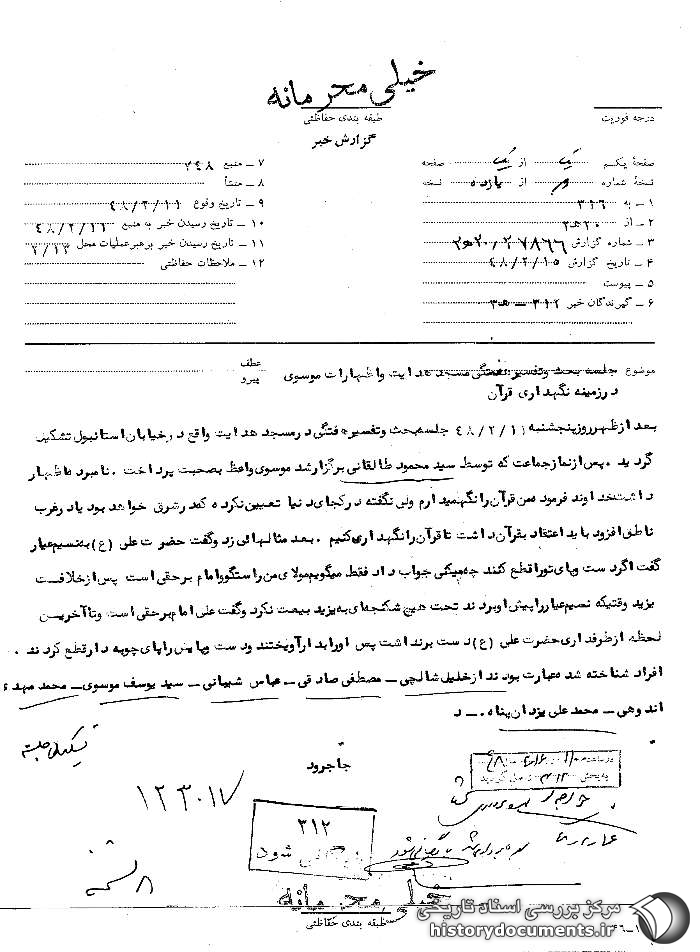 خیلی محرمانه
طبقه بندی حفاظتی
گزارش خبر
درجه فوریت
صفحهٔ یکم یک از یک صفحه
نسخهٔ شماره از یازده نسخه
۱ ـ به ۳۱۶
۲ ـ از ۲۰ هـ ۳
۳ ـ شماره گزارش ۲۷۸۶۶ / ۲۰ هـ ۳
۴ ـ تاریخ گزارش ۴۸/۲/۱۵
۵ ـ پیوست
۶ ـ گیرندگان خبر ۳۱۲ ـ ۳۰هـ
۷ ـ منبع ۲۴۸
۸ ـ منشأ
۹ ـ تاریخ وقوع ۴۸/۲/۱۱
۱۰ ـ تاریخ رسیدن خبر به منبع ۴۸/۲/۱۱
۱۱ ـ تاریخ رسیدن خبر برهبرعملیات محل ۲/۱۳
۱۲ ـ ملاحظات حفاظتی
موضوع جلسه بحث وتفسیر هفتگی مسجد هدایت واظهارات موسوی
درزمینه نگهداری قرآن
عطف
پیرو
بعد ازظهر روز پنجشنبه ۴۸/۲/۱۱ جلسه بحث وتفسیر هفتگی در مسجد هدایت واقع در خیابان استانبول تشکیل
گردید . پس از نماز جماعت که توسط سید محمود طالقانی برگزار شد موسوی واعظ بصحبت پرداخت . نامبرده اظهار
داشت خداوند فرموده من قرآن را نگهمیدارم ولی نگفته در کجای دنیا تعیین نکرده که در شرق خواهد بود یا در غرب
ناطق افزود باید اعتقاد بقرآن داشت تا قرآن را نگهداری کنیم . بعد مثالهائی زد وگفت حضرت علی (ع) به نسیم عیار
گفت اگر دست وپای تورا قطع کنند چه میکنی جواب داد فقط میگویم مولای من راستگو وامام برحق است پس از خلافت
یزید وقتیکه نسیم عیار را پیش او بردند تحت هیچ شکنجه ای به یزید بیعت نکرد وگفت علی امام برحق است وتا آخرین
لحظه از طرفداری حضرت علی (ع) دست برنداشت پس اورا بدار آویختند ودست وپایش را پای چوبه دار قطع کردند .
افراد شناخته شده عبارت بودند از خلیل شالچی ـ مصطفی صادقی ـ عباس شیبانی ـ سید یوسف موسوی ـ محمد مهدء
اندوهی ـ محمد علی یزدان پناه . ـ د
جاجرود
۱۲۳۰۱۷
۳۱۲
بایگانی شود
۸ شنبه
خیلی محرمانه
طبقه بندی حفاظتی
مرکز بررسی اسناد تاریخی
historydocuments.ir